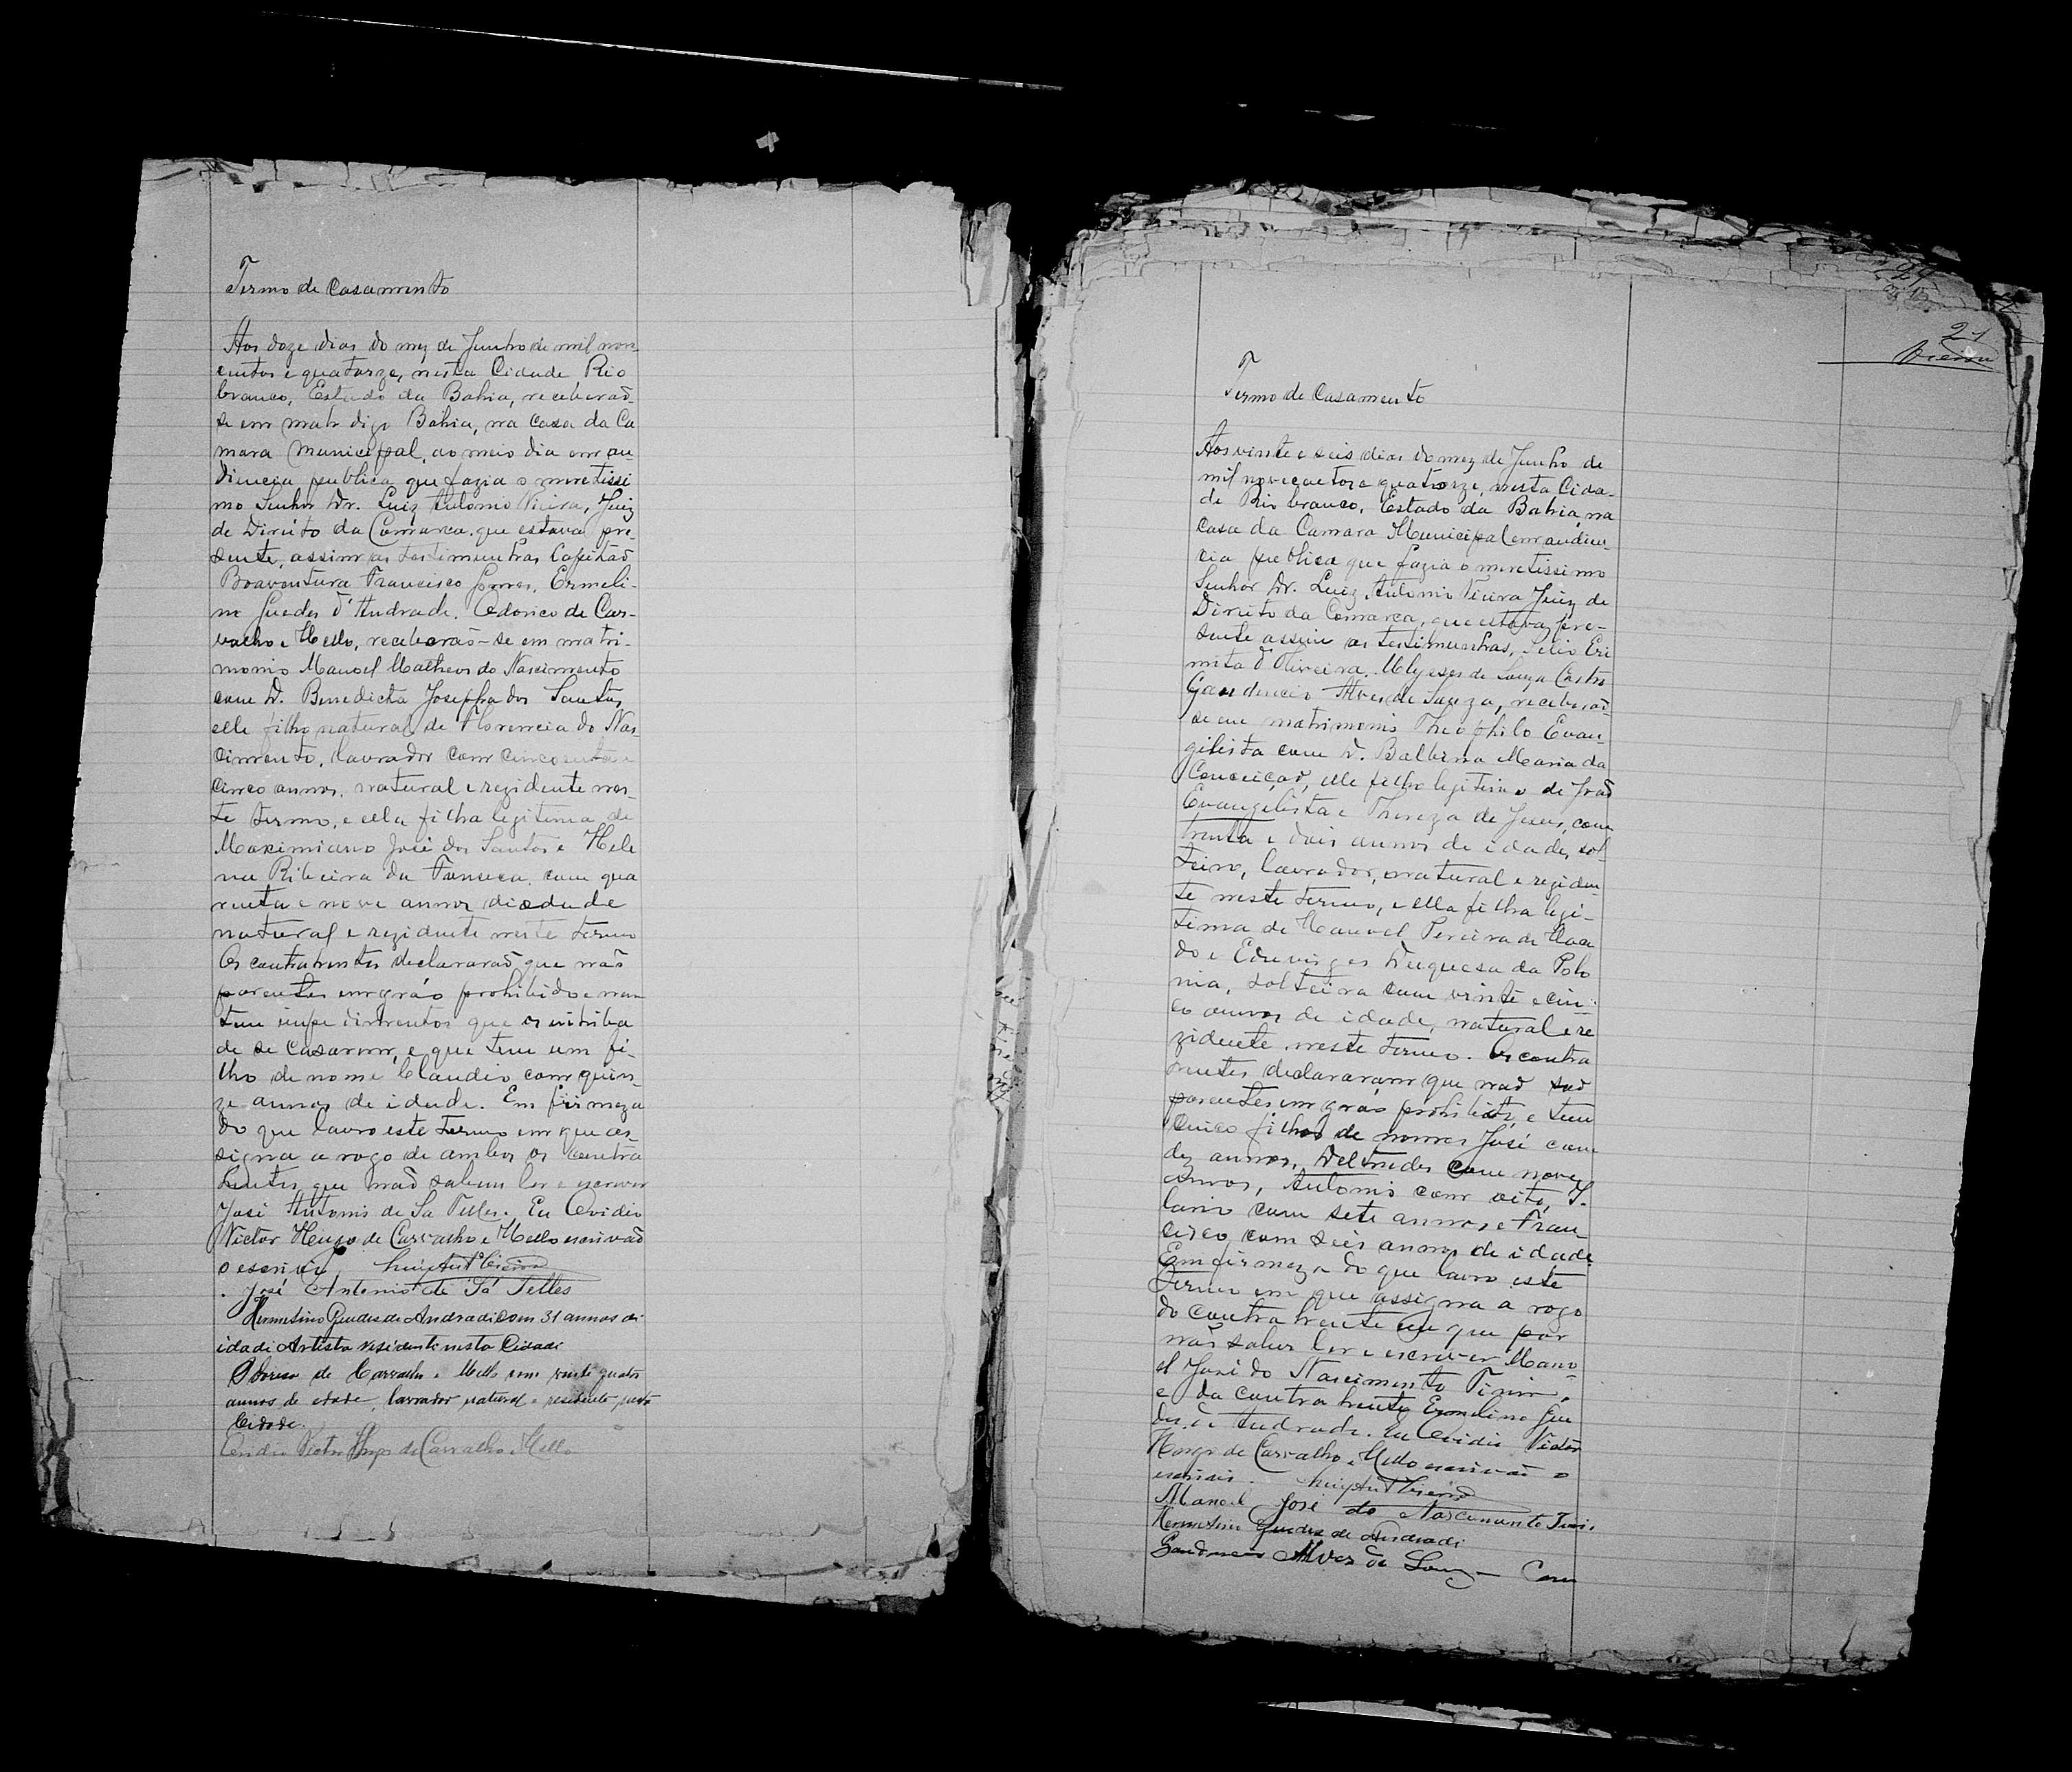 Termo de Casamento
Aos doze dias do mez de Junho de mil nove
centos e quatorze, nesta Cidade Rio
branco, Estado da Bahia, receberaõ
se em matr digo Bahia, na casa da Ca
mara Municipal, ao meio dia em au
diencia publica que fazia o meretissi
mo Senhor Dr. Luiz Antonio Vieira, Juiz
de Direito da Comarca que estava pre-
sente, assim as testimunhas Capitaõ
Boaventura Francisco Gomes, Ermeli-
no Guedes d'Andrade. Odorico de Car-
valho e Mello, receberaõ-se em matri-
monio Manoel Matheos do Nascimento
com D. Benedicta Josepha dos Santos,
elle filho natural de Florencia do Nas-
cimento, lavrador com cincoenta e
cinco annos, natural e rezidente nes-
te termo, e ella filha legitima de
Maximiano José dos Santos e Hele
na Ribeira da Fonseca, com qua
renta e nove annos de edade
natural e rezidente neste termo
Os contrahentes declararaõ que naõ
parentes em gráo prohibido e nem
tem impedimentos que os inhiba
de se casarem, e que tem um fi-
lho de nome Claudio, com quin-
ze annos de idade. Em firmeza
do que lavro este termo em que as-
signa a rogo de ambos os contra
hentes, que naõ sabem ler e escrever
José Antonio de Sá Telles. Eu Ovidio
Victor Hugo de Carvalho e Mello escrivaõ
o escrivi Luiz Antº Vieira
José Antonio de Sá Telles
Hermelino Guedes de Andradi com 31 annos di
idadi Artista residente nesta Cidadi
Odorico de Carvalho e Mello com vinte quatro
annos de edade, lavrador natural e residente nesta
Cidade.
Ovidio Victor Hugo de Carvalho e Mello
21
Vieira
Termo de Casamento
Aos vinte e seis dias do mez de Junho de
mil novecentos e quatorze, nesta Cida-
de Rio branco, Estado da Bahia, na
casa da Camara Municipal em audien-
cia publica que fazia o meretissimo
Senhor Dr. Luiz Antonio Vieira Juiz de
Direito da Comarca, que estava pre-
sente assim as testimunhas, Eri
mita d'Oliveira, Ulysses de Souza Castro
Gaudencio Alves de Souza, receberaõ
se em matrimonio Theophilo Evan-
gelista com D. Balbina Maria da
Conceiçaõ, elle filho legitimo de Joaõ
Evangelista e Thereza de Jesus, com
trinta e dois annos de idade, sol-
teiro, lavrador, natural e reziden-
te neste termo, e ella filha legi-
tima de Manoel Pereira de
do e Eduviges Duqueza da Polo
nia, solteira com vinte e cin-
co annos de idade, natural e re
zidente neste termo. Os contra
hentes declararam que naõ saõ
parentes em gráo prohibido, e tem
cinco filhos de nomes José com
dez annos, Deltrudes com nove
annos, Antonio com oito, I-
lario com sete annos, e Fran-
cisco com seis annos de idade.
Em firmeza do que lavro este
Termo em que assigna a rogo
do contrahente que por
naõ saber ler e escrever Mano
el José do Nascimento Tinin,
e da contrahente Ermelino Gue
des de Andrade. Eu Ovidio Victor
Hugo de Carvalho e Mello escrivaõ o
escrivi. Luiz Antº Vieira
Manoel José do Nascimento
Hermelino Guedes de Andradi
Gaudencio Alves de Souza Com